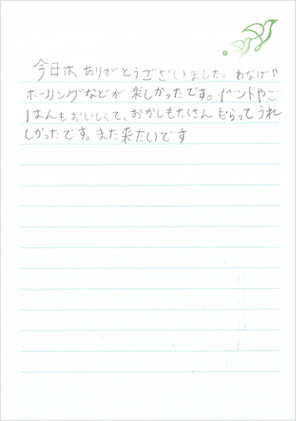 今日は、ありがとうございました。わなげや
ボーリングなどが楽しかったです。イベントやご
はんもおいしくて、おかしもたくさんもらってうれ
しかったです。また来たいです